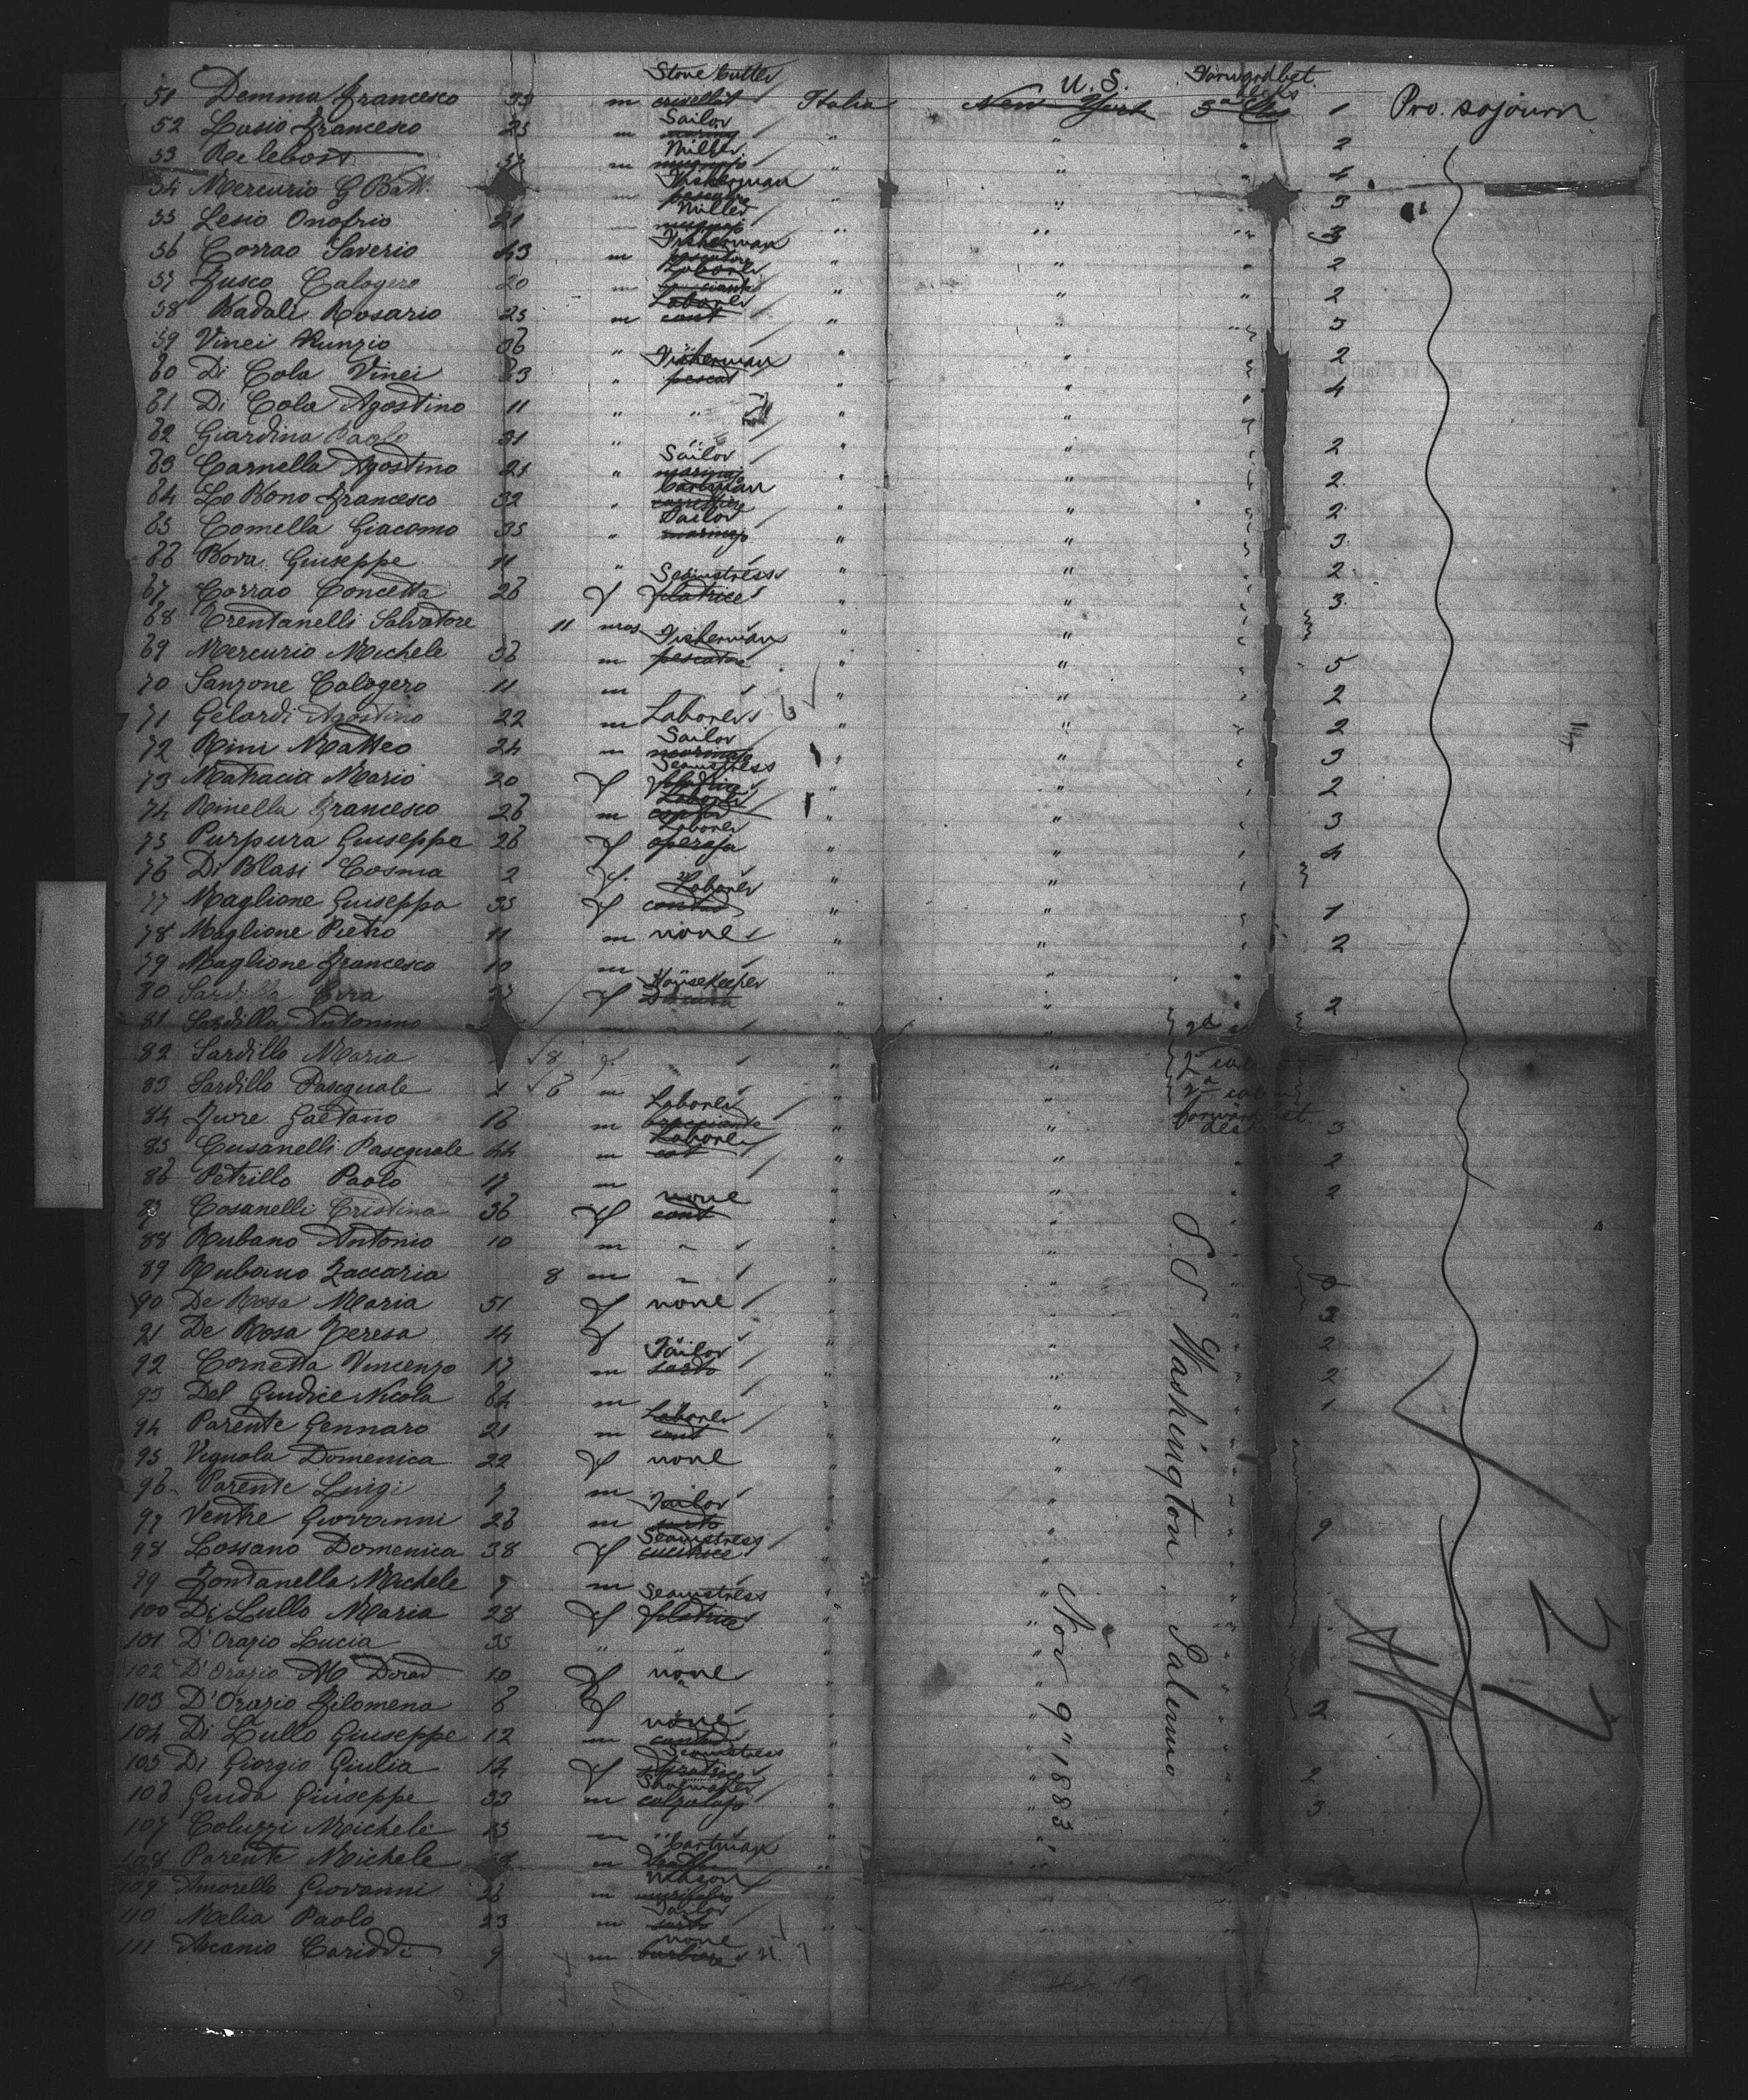 Stone Cutter U.S. Forward bet. decks
51 Demma Francesco 33 m Italia New York 3a Clas 1 Pro. sojourn
52 Lusio Francesco 23 m Sailor " " " 2
53 37 m Miller " " " 4
54 Mercurio G Batt. m Fisherman pescatore " " " 3
55 Lesio Onofrio 21 Miller " " " 3
56 Corrao Saverio 43 m Fisherman pescatore " " " 2
57 Fusco Calogero 20 m Laborer " " " 2
58 Badali Rosario 25 m Laborer cont " " " 3
59 Vinci Nunzio 36 " " " " 2
60 Di Cola Vinci 63 " Fisherman pescat " " " 4
61 Di Cola Agostino 11 " " " " "
62 Giardina Paolo 31 " " " " 2
63 Carnella Agostino 21 " Sailor marinajo " " " 2
64 Lo Bono Francesco 32 " Cartman " " " 2
65 Comella Giacomo 35 " Sailor marinajo " " " 3
66 Bova Giuseppe 11 " " " " 2
67 Corrao Concetta 26 f Seamstress filatrice " " " 3
68 Trentanelli Salvatore 11 mos " " "
69 Mercurio Michele 36 m Fisherman pescatore " " " 5
70 Sanzone Calogero 11 m " " " 2
71 Gelardi Agostino 22 m Laborer " " " 2
72 Rini Matteo 24 m Sailor marinajo " " " 3
73 Matracia Maria 20 f Seamstress " " " 2
74 Rinella Francesco 26 m Laborer " " " 3
75 Purpura Giuseppa 26 f Laborer operaja " " " 4
76 Di Blasi Cosma 2 f. " " "
77 Maglione Giuseppa 35 f Laborer contad " " " 1
78 Maglione Pietro 11 m none " " " 2
79 Maglione Francesco 10 m " " "
80 Sardilla f Housekeeper " " " 2
81 Sardilla Antonino " " 2a
82 Sardillo Maria 8 f. " " 2a cab
83 Sardillo Pasquale 6 m " " 2a
84 Fure Gaetano 16 m Laborer bracciante " " forward bet. decks 3
85 Cusanelli Pasquale 44 m Laborer " " " 2
86 Petrillo Paolo 17 m " " " 2
87 Cosanelli Cristina 36 f none cont " " "
88 Rubano Antonio 10 m " " " "
89 Rubano Zaccaria 8 m " " " "
90 De Rosa Maria 51 f none " " " 3
91 De Rosa Teresa 14 f " " " 2
92 Cornetta Vincenzo 17 m Tailor sarto " " " 2
93 Del Giudice Nicola 64 m " " " 1
94 Parente Gennaro 21 m Laborer cont " " "
95 Vignola Domenica 22 f none " " "
96 Parente Luigi 7 m " " "
97 Ventre Giovanni 26 m Tailor sarto " " " 9
98 Lossano Domenica 38 f Seamstress cucitrice " " "
99 Fontanella Michele 7 m " " "
100 Di Lullo Maria 28 f Seamstress filatrice " " "
101 D'Orazio Lucia 35 " " " " "
102 D'Orazio M 10 f none " " "
103 D'Orazio Filomena 6 f " " " 2
104 Di Lullo Giuseppe 12 m none contad " " "
105 Di Giorgio Giulia 14 f Seamstress filatrice " " " 2
106 Guida Giuseppe 33 m Shoemaker calzolajo " " " 3
107 Coluzzi Michele 13 " " "
108 Parente Michele m Cartman " " "
109 Amorello Giovanni 26 m Mason " "
110 Melia Paolo 23 m Tailor sarto " " "
111 Ascanio Cariddi 9 m none barbiere
S.S. Washington. Palermo
Nov 9" 1883.
27